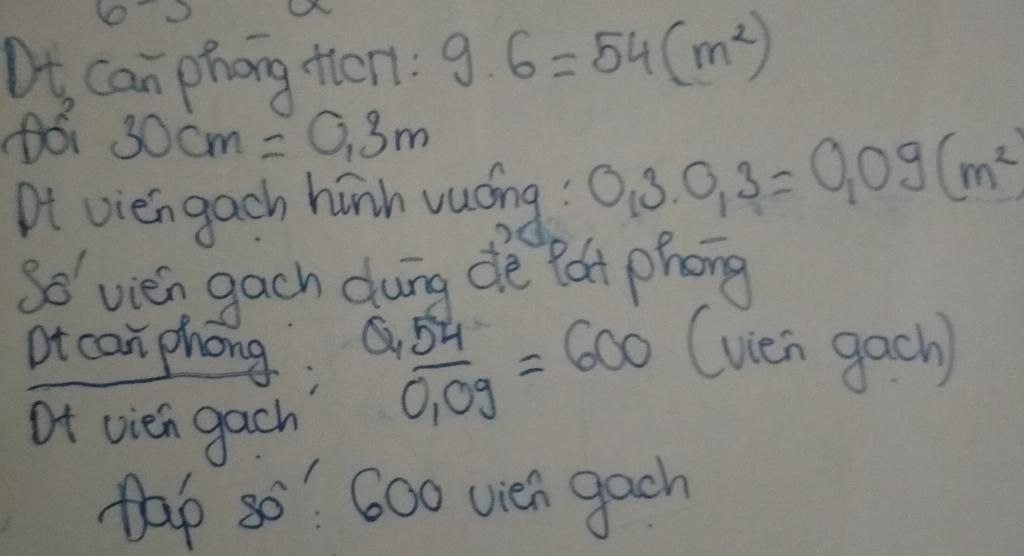 Dt căn phòng HCN: 9.6 = 54 (m²)
Đổi 30cm = 0,3m
Dt viên gạch hình vuông: 0,3.0,3 = 0,09 (m²
Số viên gạch dùng để lát phòng
Dt căn phòng / Dt viên gạch : 0,54 / 0,09 = 600 (viên gạch)
Đáp số: 600 viên gạch